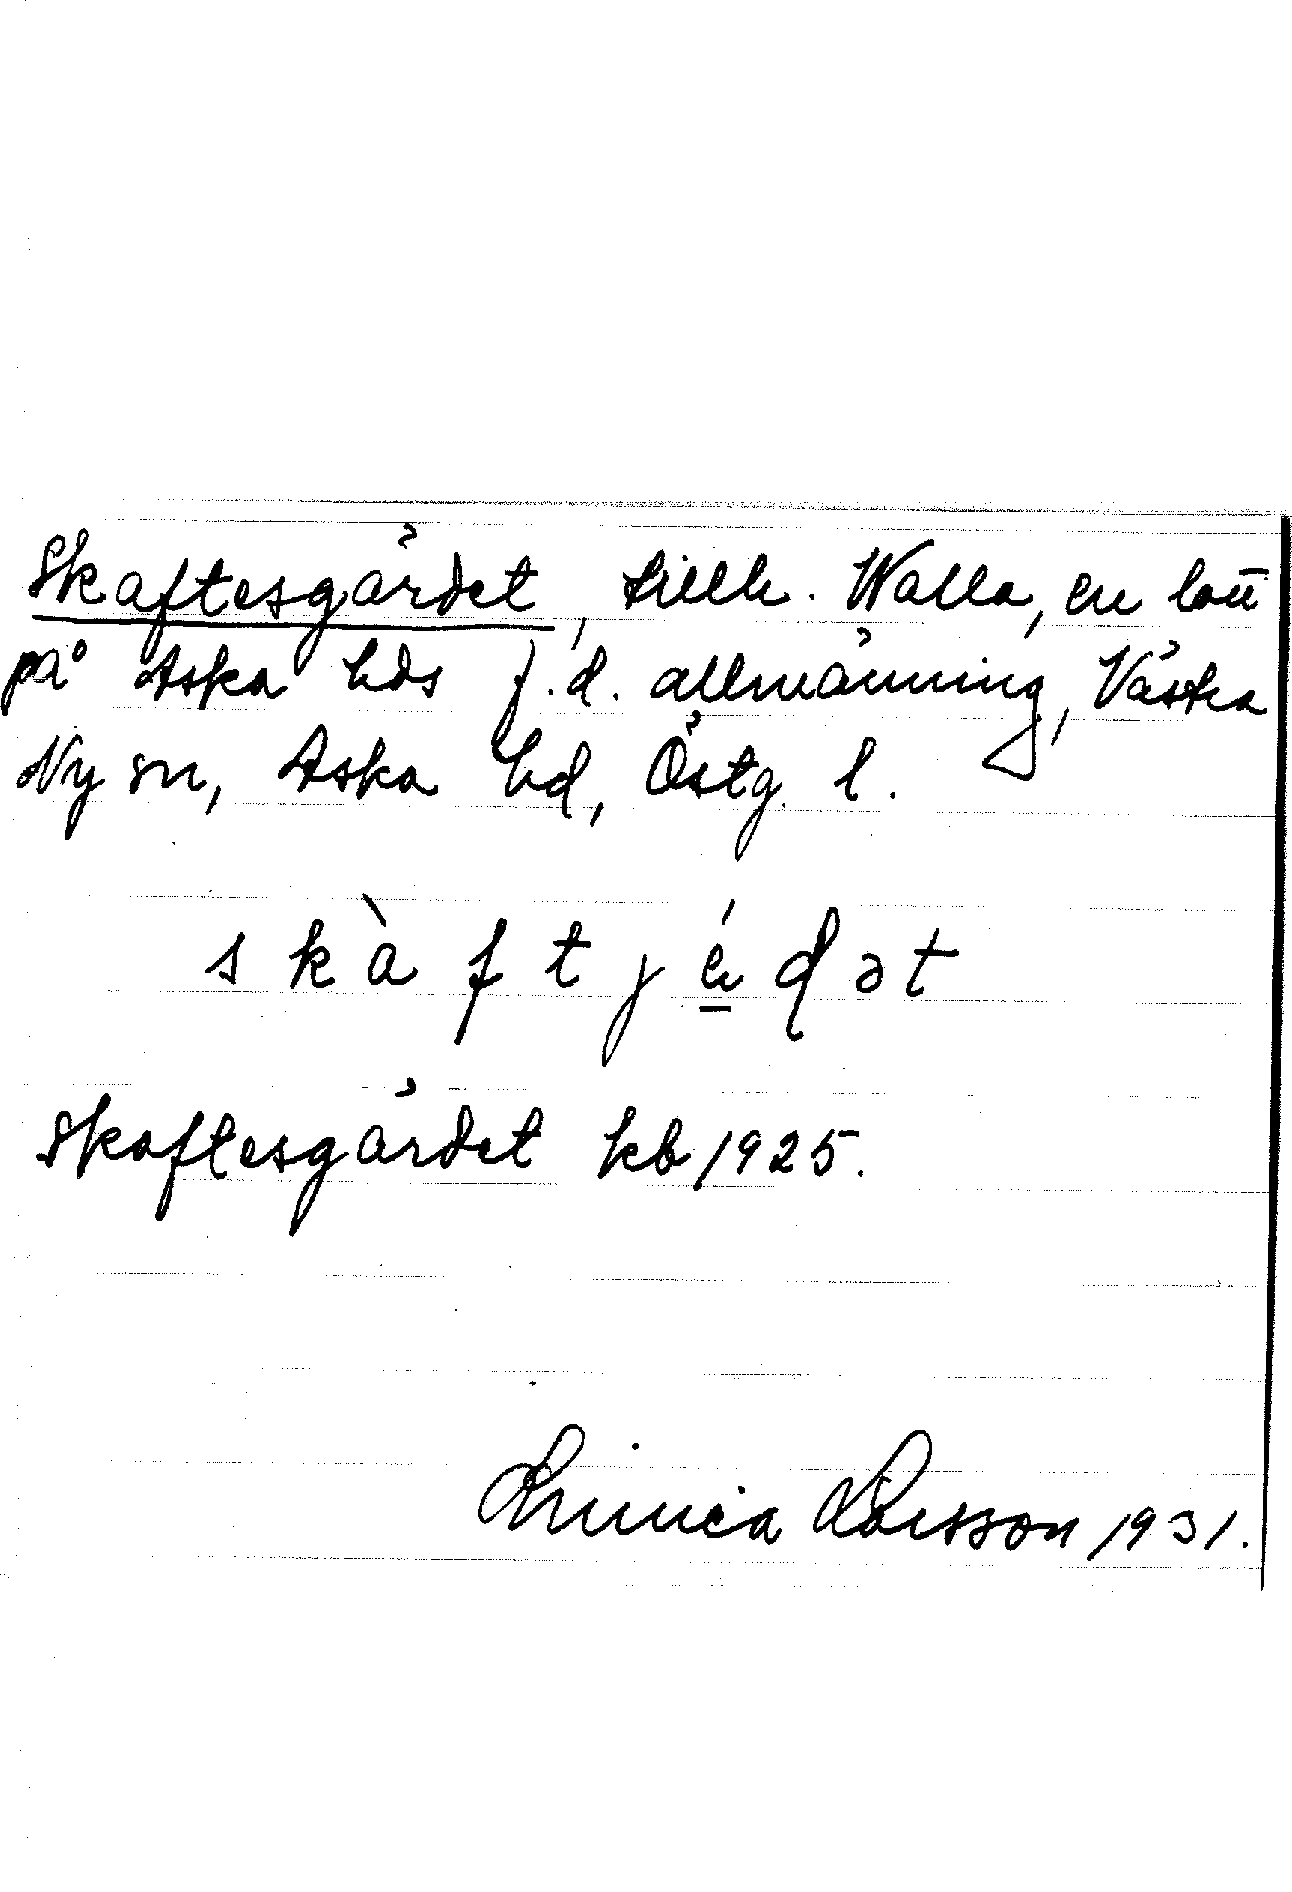 Skaftesgärdet, tillh. Walla, en lott
på Aska hds f.d. allmänning, Västra
Ny sn, Aska hd, Östg. l.
skàftjédət
Skaftesgärdet kb 1925.
Linnéa Larsson 1931.